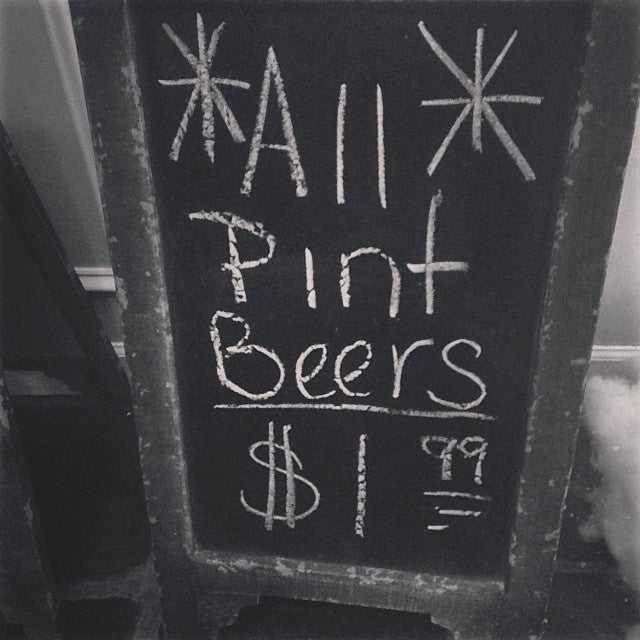 *All*
Pint
Beers
$1 99